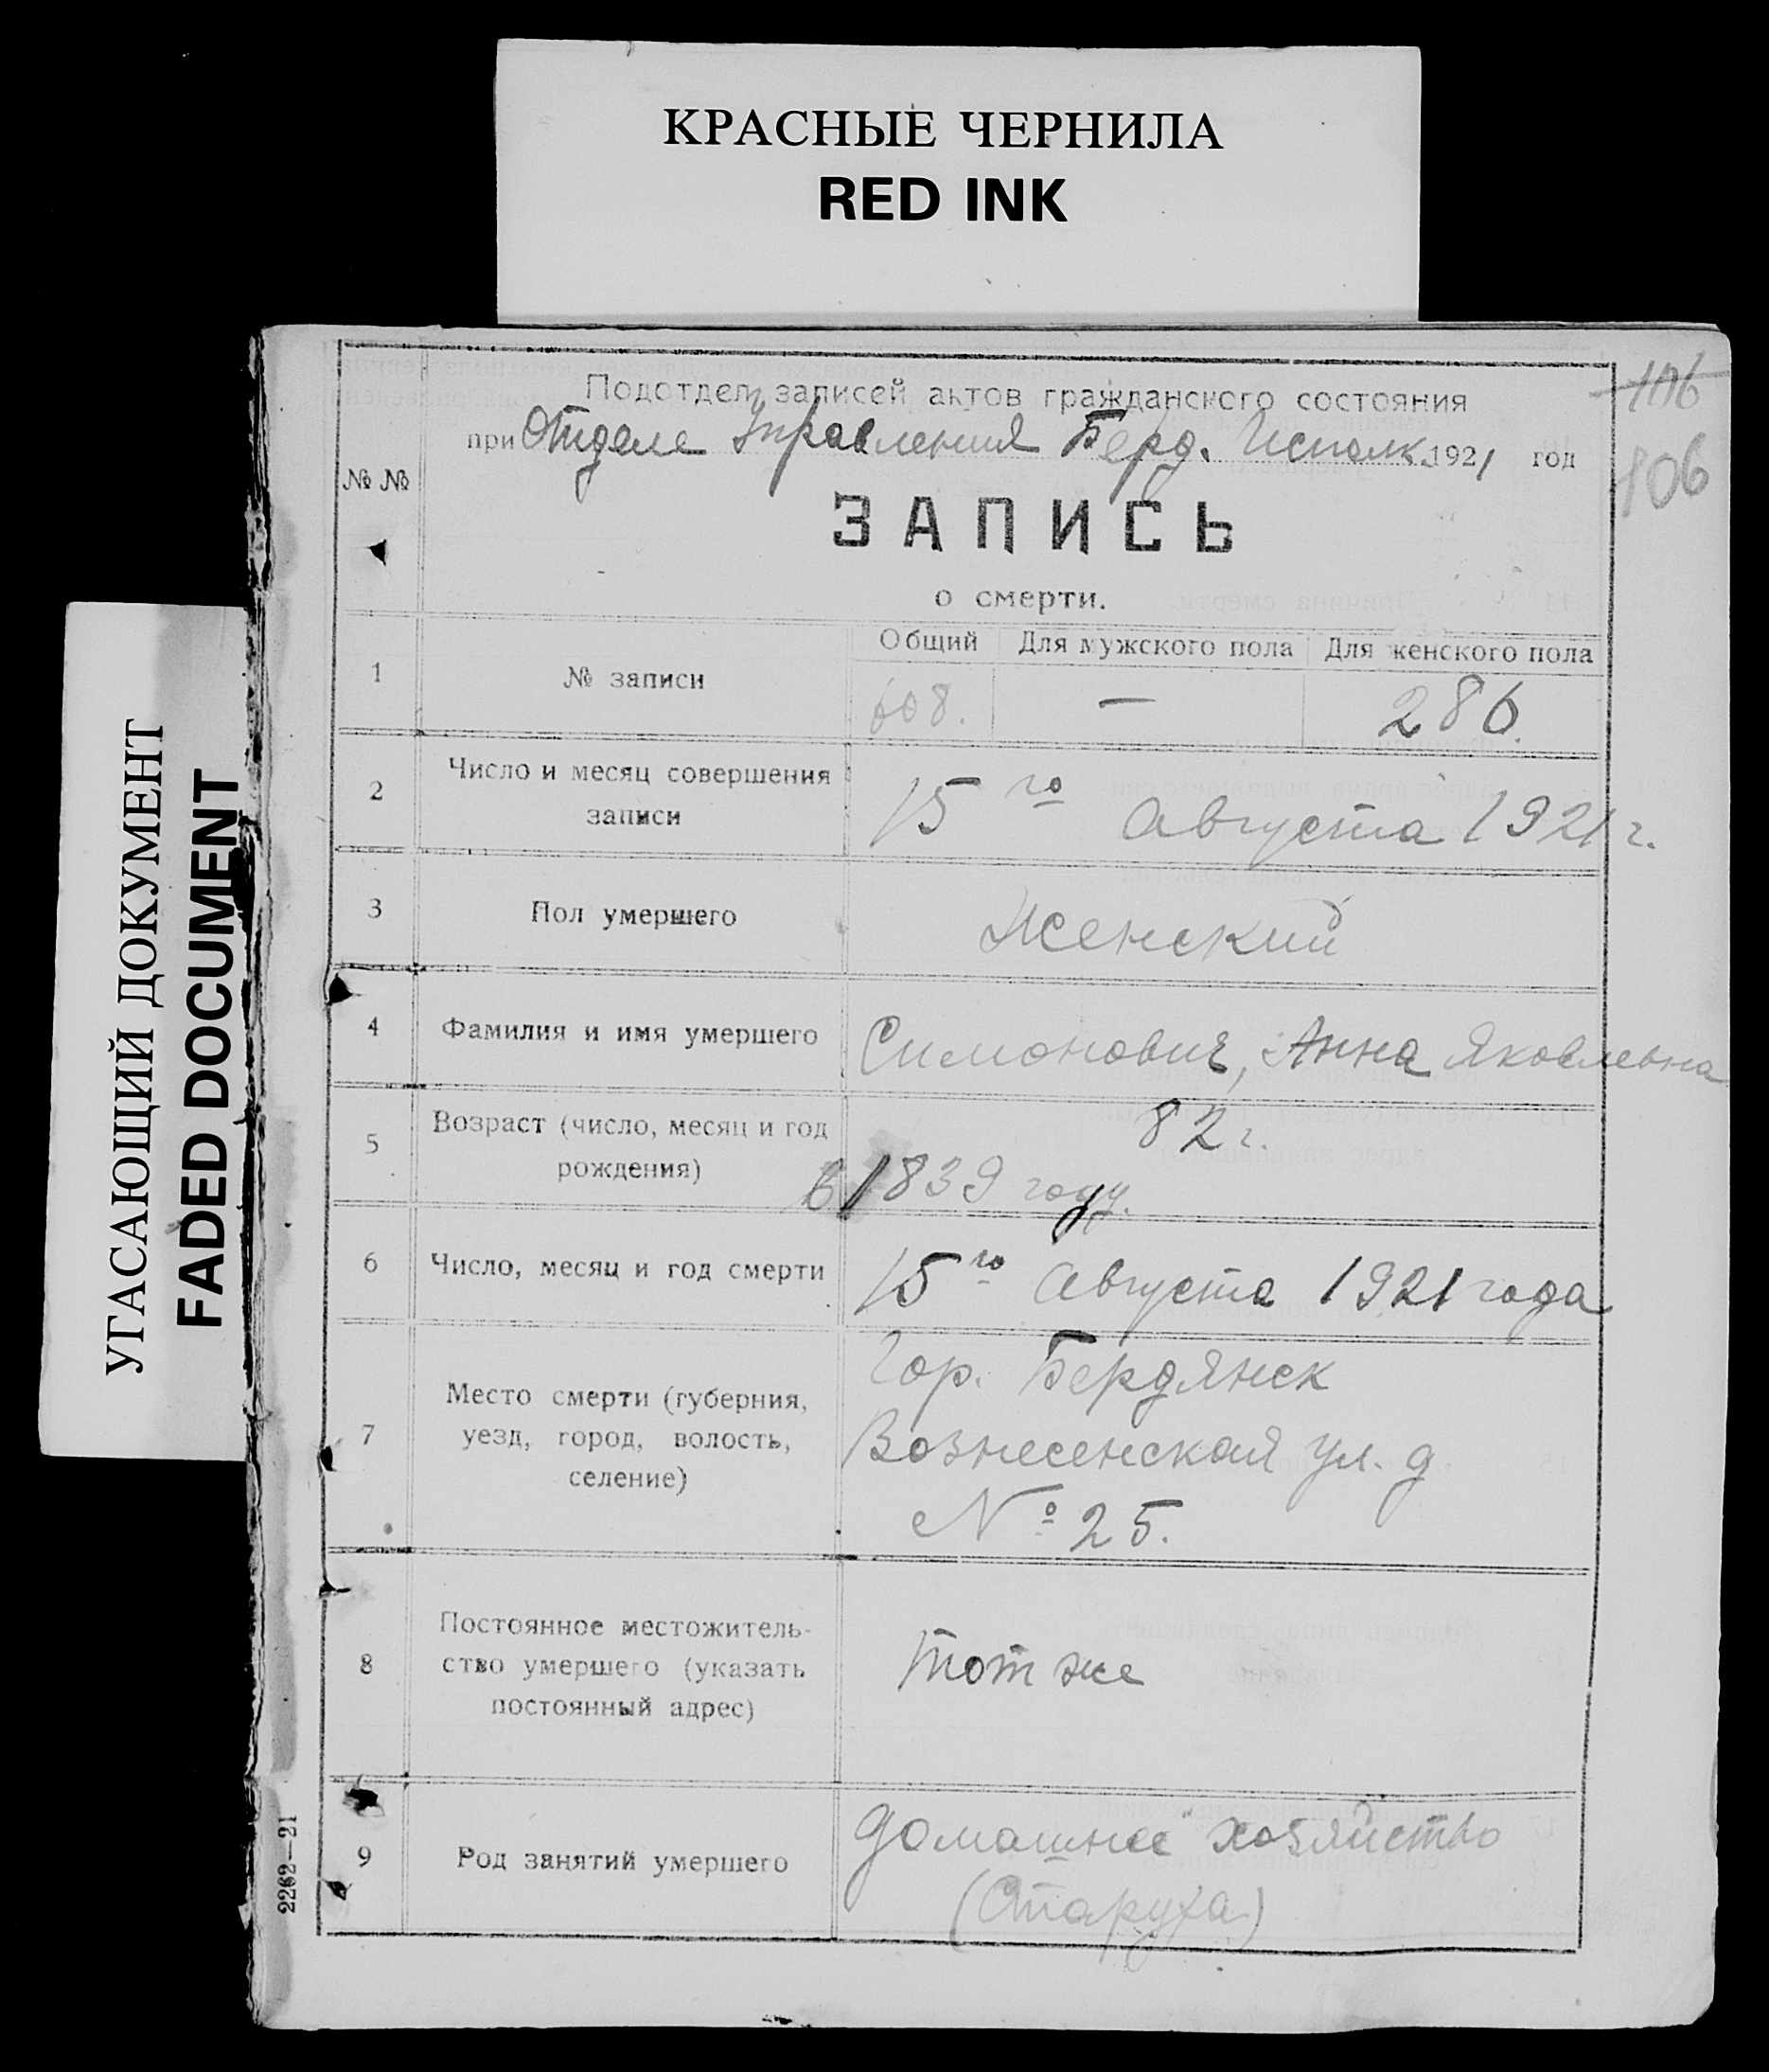 КРАСНЫЕ ЧЕРНИЛА
RED INK
УГАСАЮЩИЙ ДОКУМЕНТ
FADED DOCUMENT
106
106
Подотдел записей актов гражданского состояния
при Отделе Управления Берд. Исполк. 1921 год
№ №
ЗАПИСЬ
о смерти.
Общий Для мужского пола Для женского пола
1 № записи 608. — 286.
2 Число и месяц совершения
записи 15го Августа 1921 г.
3 Пол умершего Женский
4 Фамилия и имя умершего Симонович, Анна Яковлевна
5 Возраст (число, месяц и год
рождения) 82 г.
в 1839 году.
6 Число, месяц и год смерти 15го Августа 1921 года
7 Место смерти (губерния,
уезд, город, волость,
селение)
Гор. Бердянск
Вознесенская ул. д
№ 25.
8 Постоянное местожитель-
ство умершего (указать
постоянный адрес)
тот же
9 Род занятий умершего
домашнее хозяйство
(Старуха)
2262—21